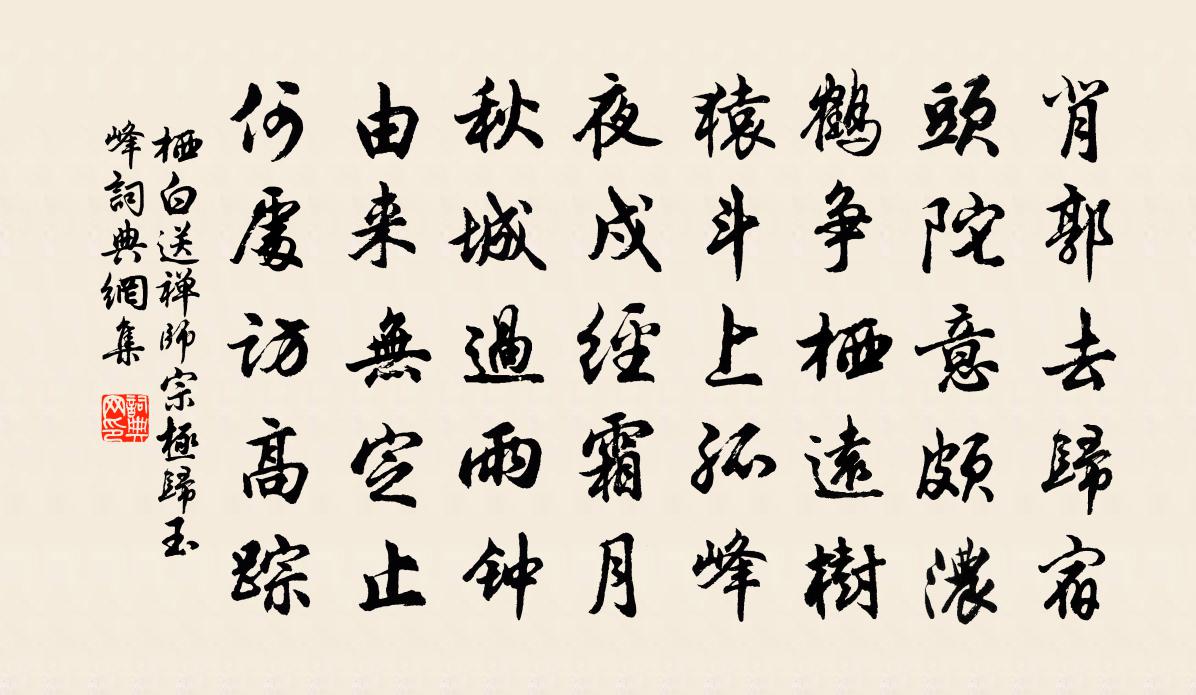 背郭去歸宿
頭陀意頗濃
鶴争栖遠樹
猿斗上孤峰
夜戍經霜月
秋城過雨钟
由来無定止
何處访高踪
栖白送禅师宗極歸玉
峰詞典網集
詞典网印